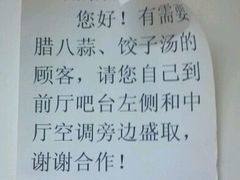 您好！有需要
腊八蒜、饺子汤的
顾客，请您自己到
前厅吧台左侧和中
厅空调旁边盛取，
谢谢合作！